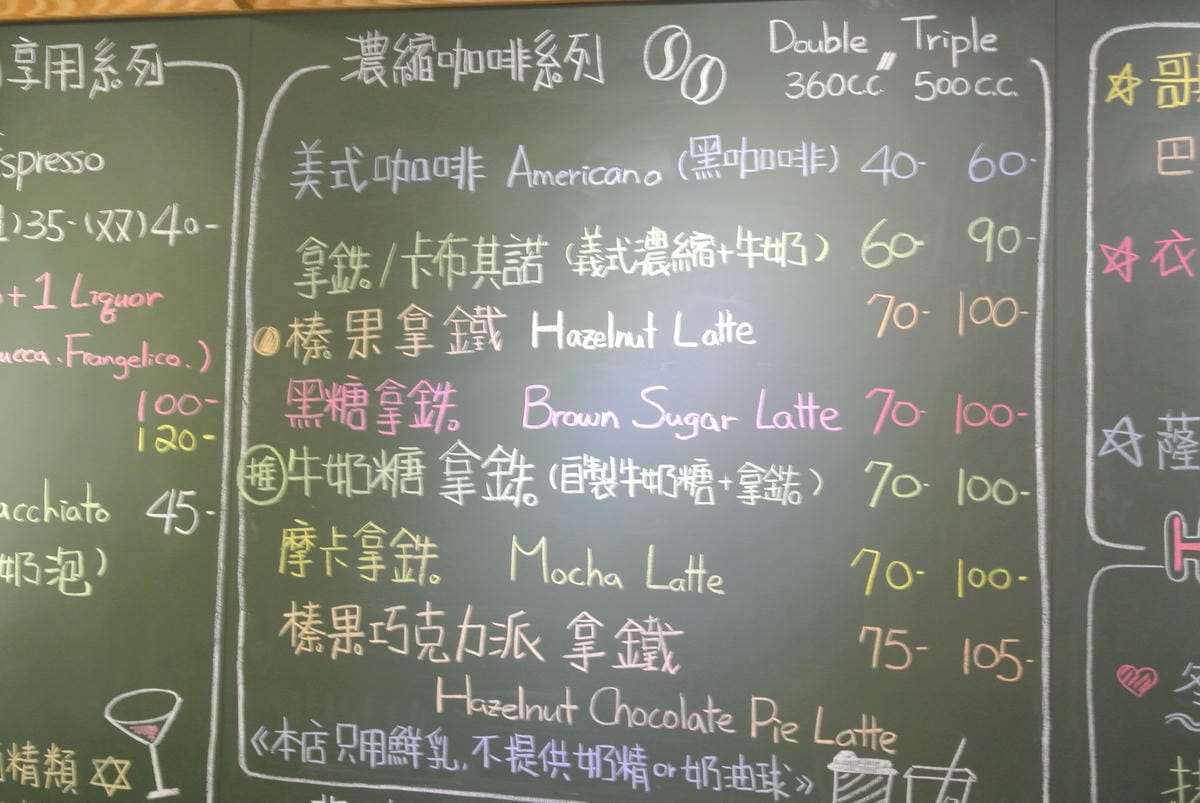 享用系列
Espresso
35- (双) 40-
+ 1 Liquor
ucca. Frangelico.)
100-
120-
acchiato 45-
奶泡)
精類
濃縮咖啡系列 Double 〃 Triple
360c.c. 500c.c.
美式咖啡 Americano (黑咖啡) 40- 60-
拿鉄/卡布其諾 (義式濃縮+牛奶) 60- 90-
榛果拿鐵 Hazelnut Latte 70- 100-
黑糖拿鉄 Brown Sugar Latte 70- 100-
推 牛奶糖拿鉄 (自製牛奶糖+拿鉄) 70- 100-
摩卡拿鉄 Mocha Latte 70- 100-
榛果巧克力派拿鐵 75- 105-
Hazelnut Chocolate Pie Latte
《本店只用鮮乳,不提供奶精or奶油球》
歌
巴
衣
薩
H